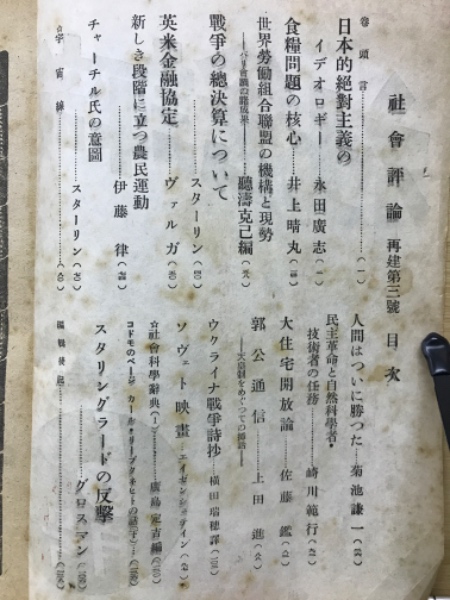 社會評論 再建第三號 目次
卷頭言……(一)
日本的絕對主義の
イデオロギー……永田廣志
食糧問題の核心……井上晴丸
世界勞働組合聯盟の機構と現勢
――パリ會議の諸成果――聽濤克己編
戰爭の總決算について
……スターリン
英米金融協定……ヴァルガ
新しき段階に立つ農民運動
……伊藤律
チャーチル氏の意圖
……スターリン
☆宇宙線……
人間はついに勝つた……菊池謙一
民主革命と自然科學者・
技術者の任務……崎川範行
大住宅開放論……佐藤鑑
郭公通信……上田進
――天皇制をめぐつての挿話――
ウクライナ戰爭詩抄……橫田瑞穗譯
ソヴェト映畫……エイゼンシュテイン
☆社會科學辭典(一)……廣島定吉編
コドモのページ カール・リープクネヒトの話(下)……
スターリングラードの反擊
……グロスマン
編輯後記……